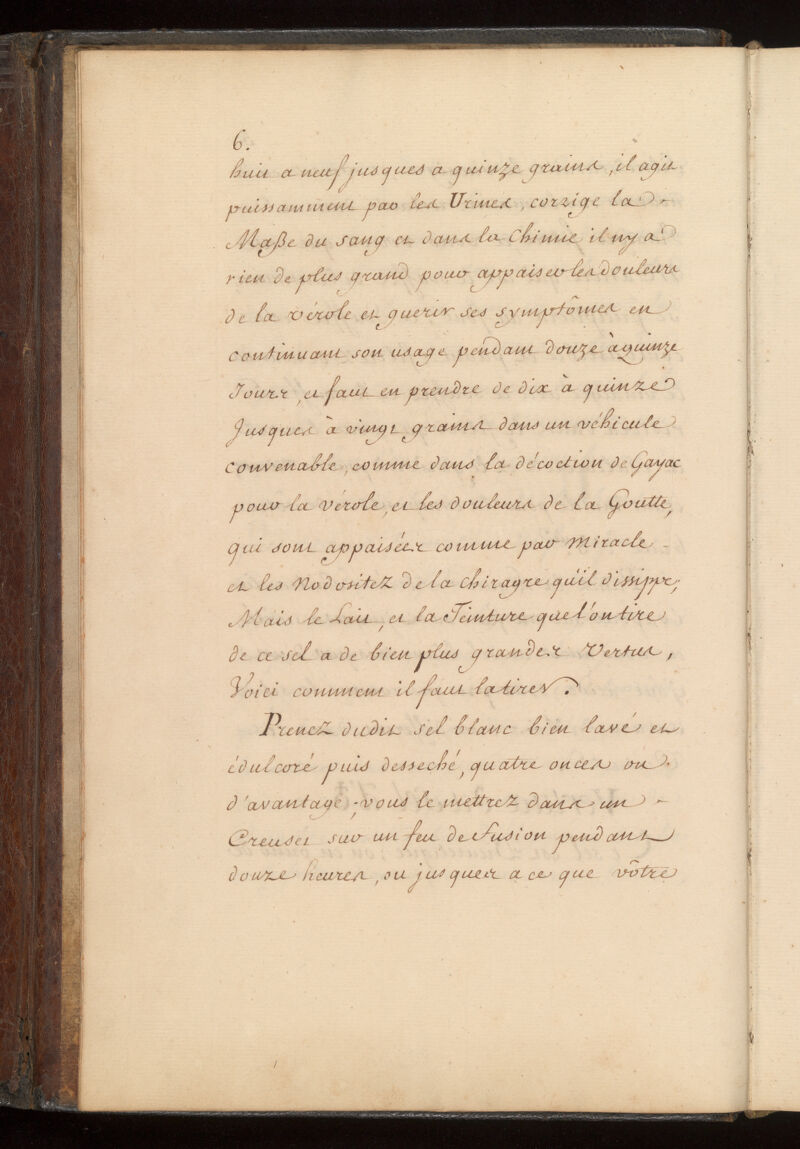 6.
huit a neuf jusques a quinze grains, il agit
puissamment par les Urines, corrige la
Maße du sang et dans la Chimie il ny a
rien de plus grand pour appaiser les douleurs
de la vérole et guerir ses symptômes en
continuant son usage pendant douze à quinze
Jours, et faut en prendre de dix à quinze
Jusques à vingt grains dans un véhicule
convenable, comme dans la décoction de Gayac
pour la vérole, et les douleurs de la Goutte,
qui sont appaisées comme par Miracle
et les Nodositez de la Chiragre qu'il dissippe;
Mais le Lait, et la Teinture que l'on tire
de ce sel a de bien plus grandes Vertus,
Voici comment il faut la tirer.
Prenez dudit sel blanc bien lavé et
édulcoré puis desseché, quatre onces ou
d'avantage; vous le mettrez dans un
Creuset sur un feu de Fusion pendant
douze heures, ou jusques a ce que vôtre